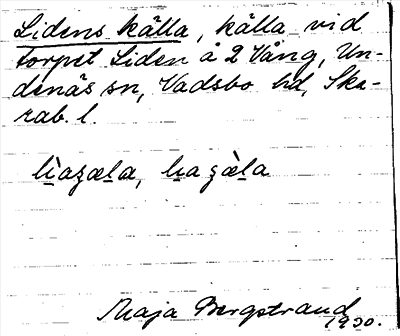 Lidens källa, källa vid
torpet Liden å 2 Vång, Un-
denäs sn, Vadsbo hd, Ska-
rab. l.
Maja Bergstrand
1930.